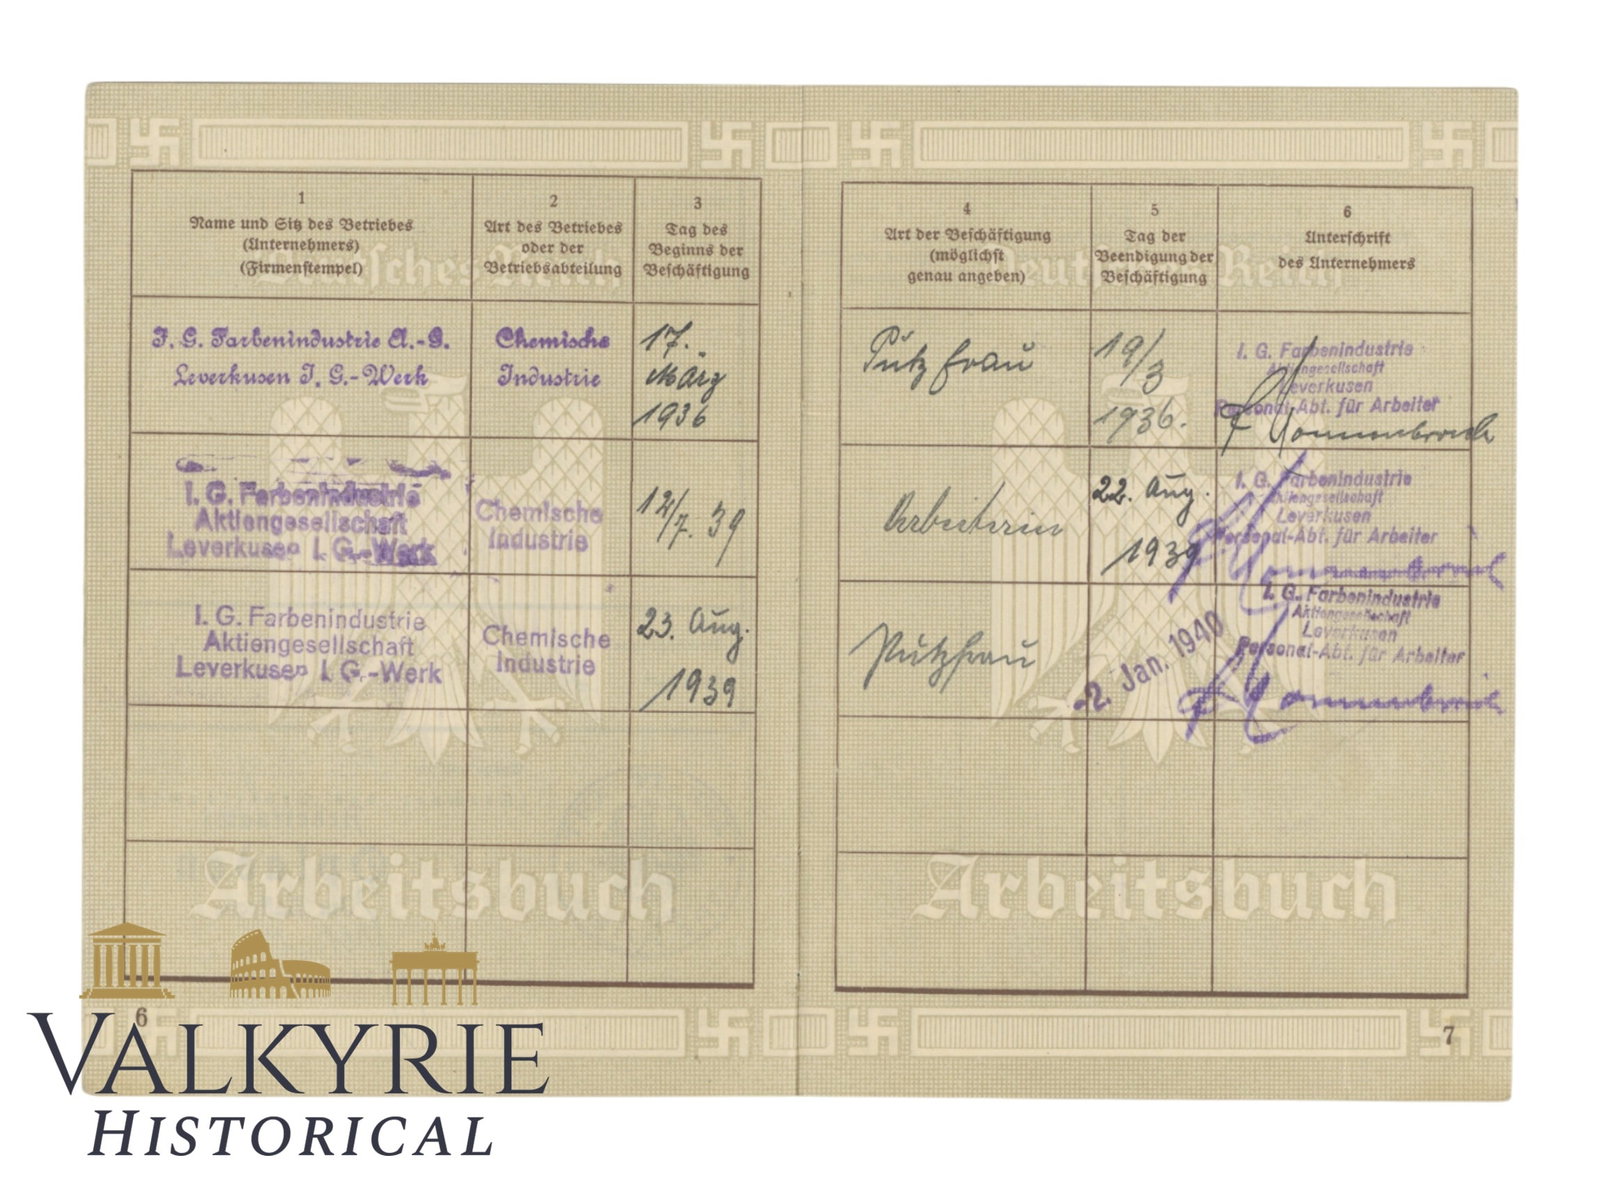 1
Name und Sitz des Betriebes
(Unternehmers)
(Firmenstempel)
2
Art des Betriebes
oder der
Betriebsabteilung
3
Tag des
Beginns der
Beschäftigung
Deutsches Reich
I. G. Farbenindustrie A.-G.
Leverkusen I. G.-Werk
Chemische
Industrie
17.
März
1936
I. G. Farbenindustrie
Aktiengesellschaft
Leverkusen I. G.-Werk
Chemische
Industrie
12/7. 39
I. G. Farbenindustrie
Aktiengesellschaft
Leverkusen I. G.-Werk
Chemische
Industrie
23. Aug.
1939
Arbeitsbuch
6
4
Art der Beschäftigung
(möglichst
genau angeben)
5
Tag der
Beendigung der
Beschäftigung
6
Unterschrift
des Unternehmers
Deutsches Reich
Putzfrau
19/3
1936.
I. G. Farbenindustrie
Aktiengesellschaft
Leverkusen
Personal-Abt. für Arbeiter
Arbeiterin
22. Aug.
1939
I. G. Farbenindustrie
Aktiengesellschaft
Leverkusen
Personal-Abt. für Arbeiter
Putzfrau
-2. Jan. 1940
I. G. Farbenindustrie
Aktiengesellschaft
Leverkusen
Personal-Abt. für Arbeiter
Arbeitsbuch
7
VALKYRIE
HISTORICAL